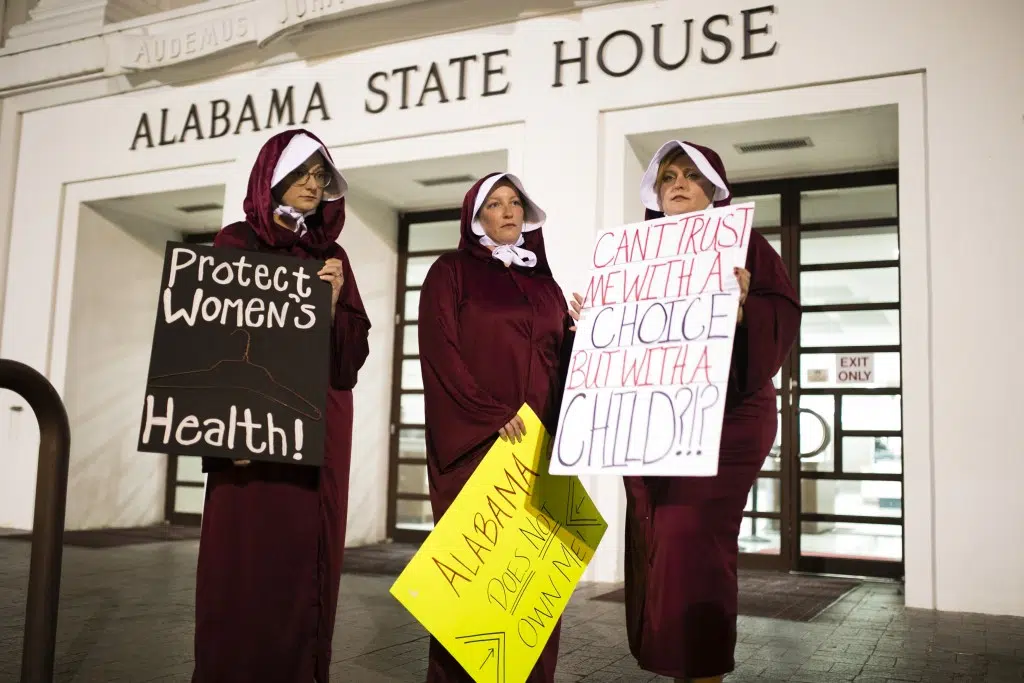 AUDEMUS JURA
ALABAMA STATE HOUSE
Protect
Women's
Health!
ALABAMA
DOES NOT
OWN ME!
CAN'T TRUST
ME WITH A
CHOICE
BUT WITH A
CHILD?!?
EXIT
ONLY